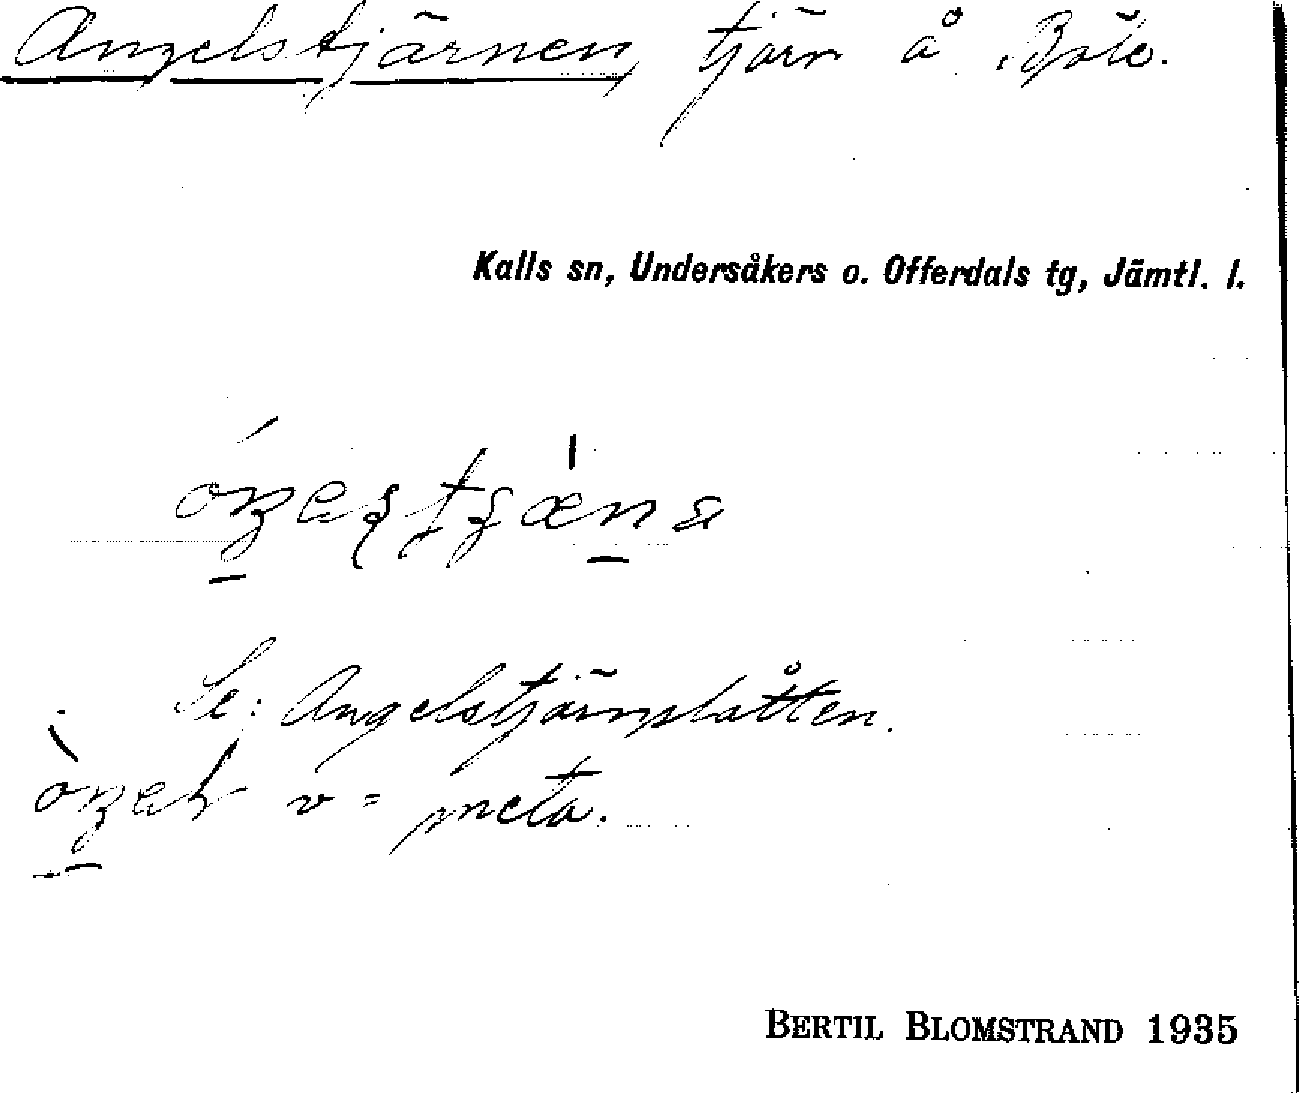 Angelstjärnen, tjärn å
Kalls sn, Undersåkers o. Offerdals tg, Jämtl. l.
Se: Angelstjärnslåtten.
v = meta.
BERTIL BLOMSTRAND 1935